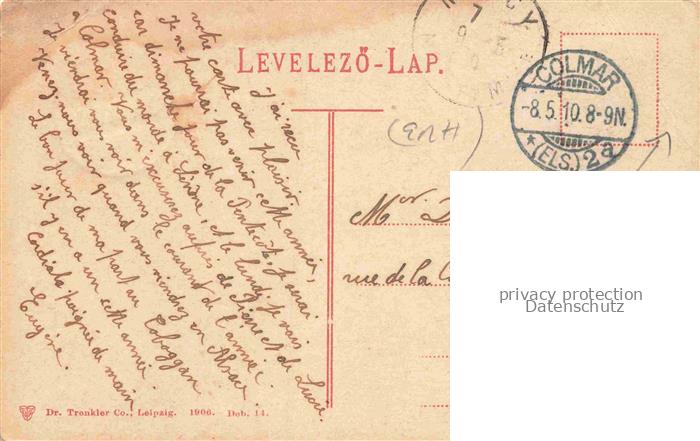 LEVELEZŐ-LAP.
COLMAR
-8.5.10.8-9N.
*(ELS.) 2a
J'ai reçu
votre carte avec plaisir.
Je ne pourrai pas venir cette année,
car dimanche jour de la Pentecôte, j'aurai
conduire du monde à et le lundi je vais
à Colmar. Vous m'excuserez auprès de Pierre et de Lucie.
Je viendrai vous voir dans le courant de l'année.
Venez nous voir quand vous viendrez en Alsace.
Le bon jour de ma part au Toboggan
s'il y en a un cette année.
Cordiale poignée de main
Eugène.
Mor. D
rue de la
privacy protection
Datenschutz
Dr. Trenkler Co., Leipzig. 1906. Deb. 14.